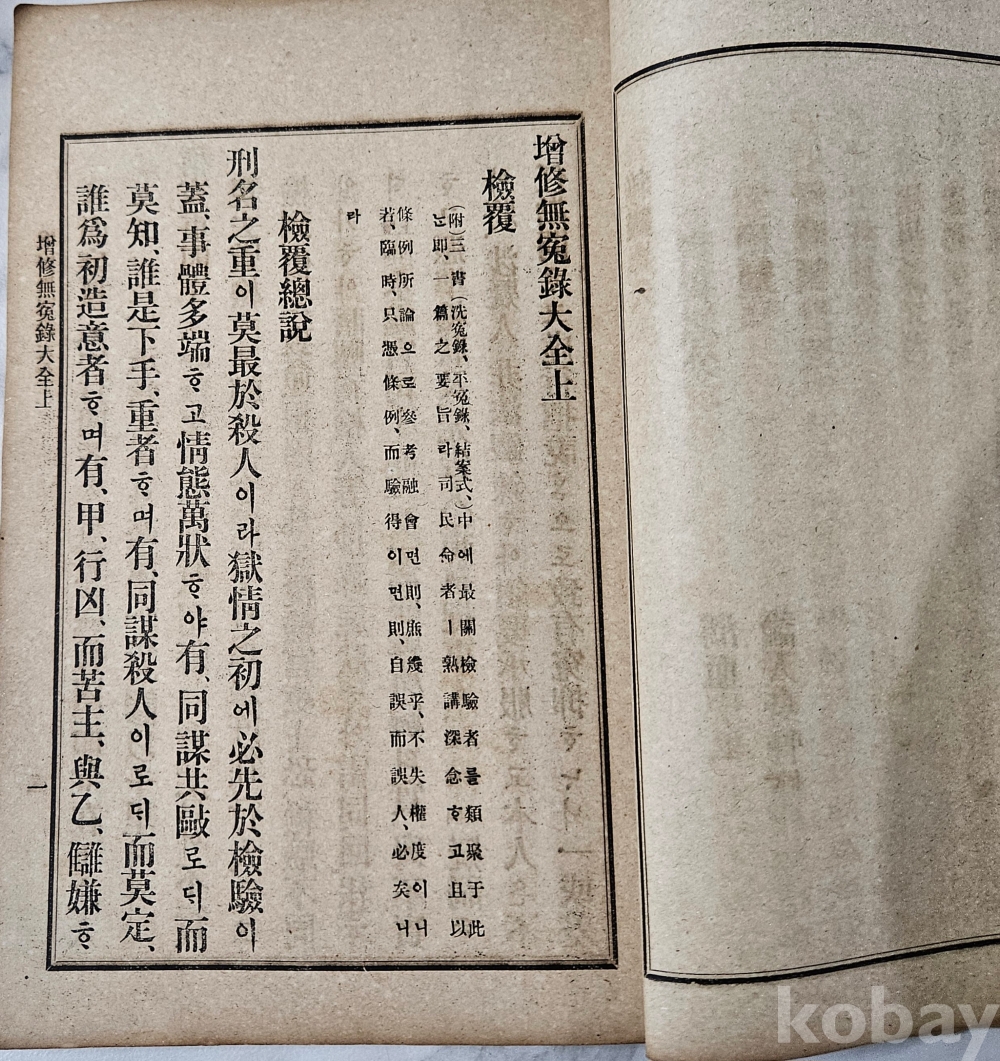 增修無冤錄大全上
檢覆
(附)三書(洗冤錄、平冤錄、結案式、)中에最關檢驗者를類聚于此
ᄂᆞᆫ即、一篇之要旨라司民命者ㅣ熟講深念ᄒᆞ고且以
條例所論으로參考融會면則、庶幾乎、不失權度이니
若、臨時、只憑條例、而驗得이면則、自誤而誤人、必矣니
라
檢覆總說
刑名之重이莫最於、殺人이라獄情之初에必先於檢驗이
蓋、事體多端ᄒᆞ고情態萬狀ᄒᆞ야有、同謀共敺로ᄃᆡ而
莫知、誰是下手、重者ᄒᆞ며有、同謀殺人이로ᄃᆡ而莫定、
誰爲初造意者ᄒᆞ며有、甲、行凶、而苦主、與乙、讎嫌ᄒᆞ
增修無冤錄大全上
一
kobay